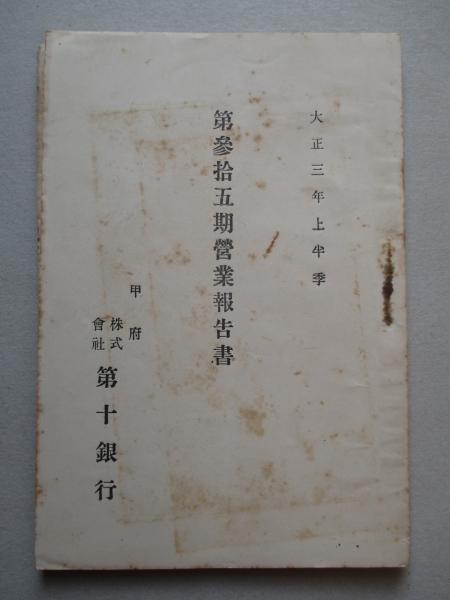 大正三年上半季
第參拾五期營業報告書
甲府
株式會社第十銀行